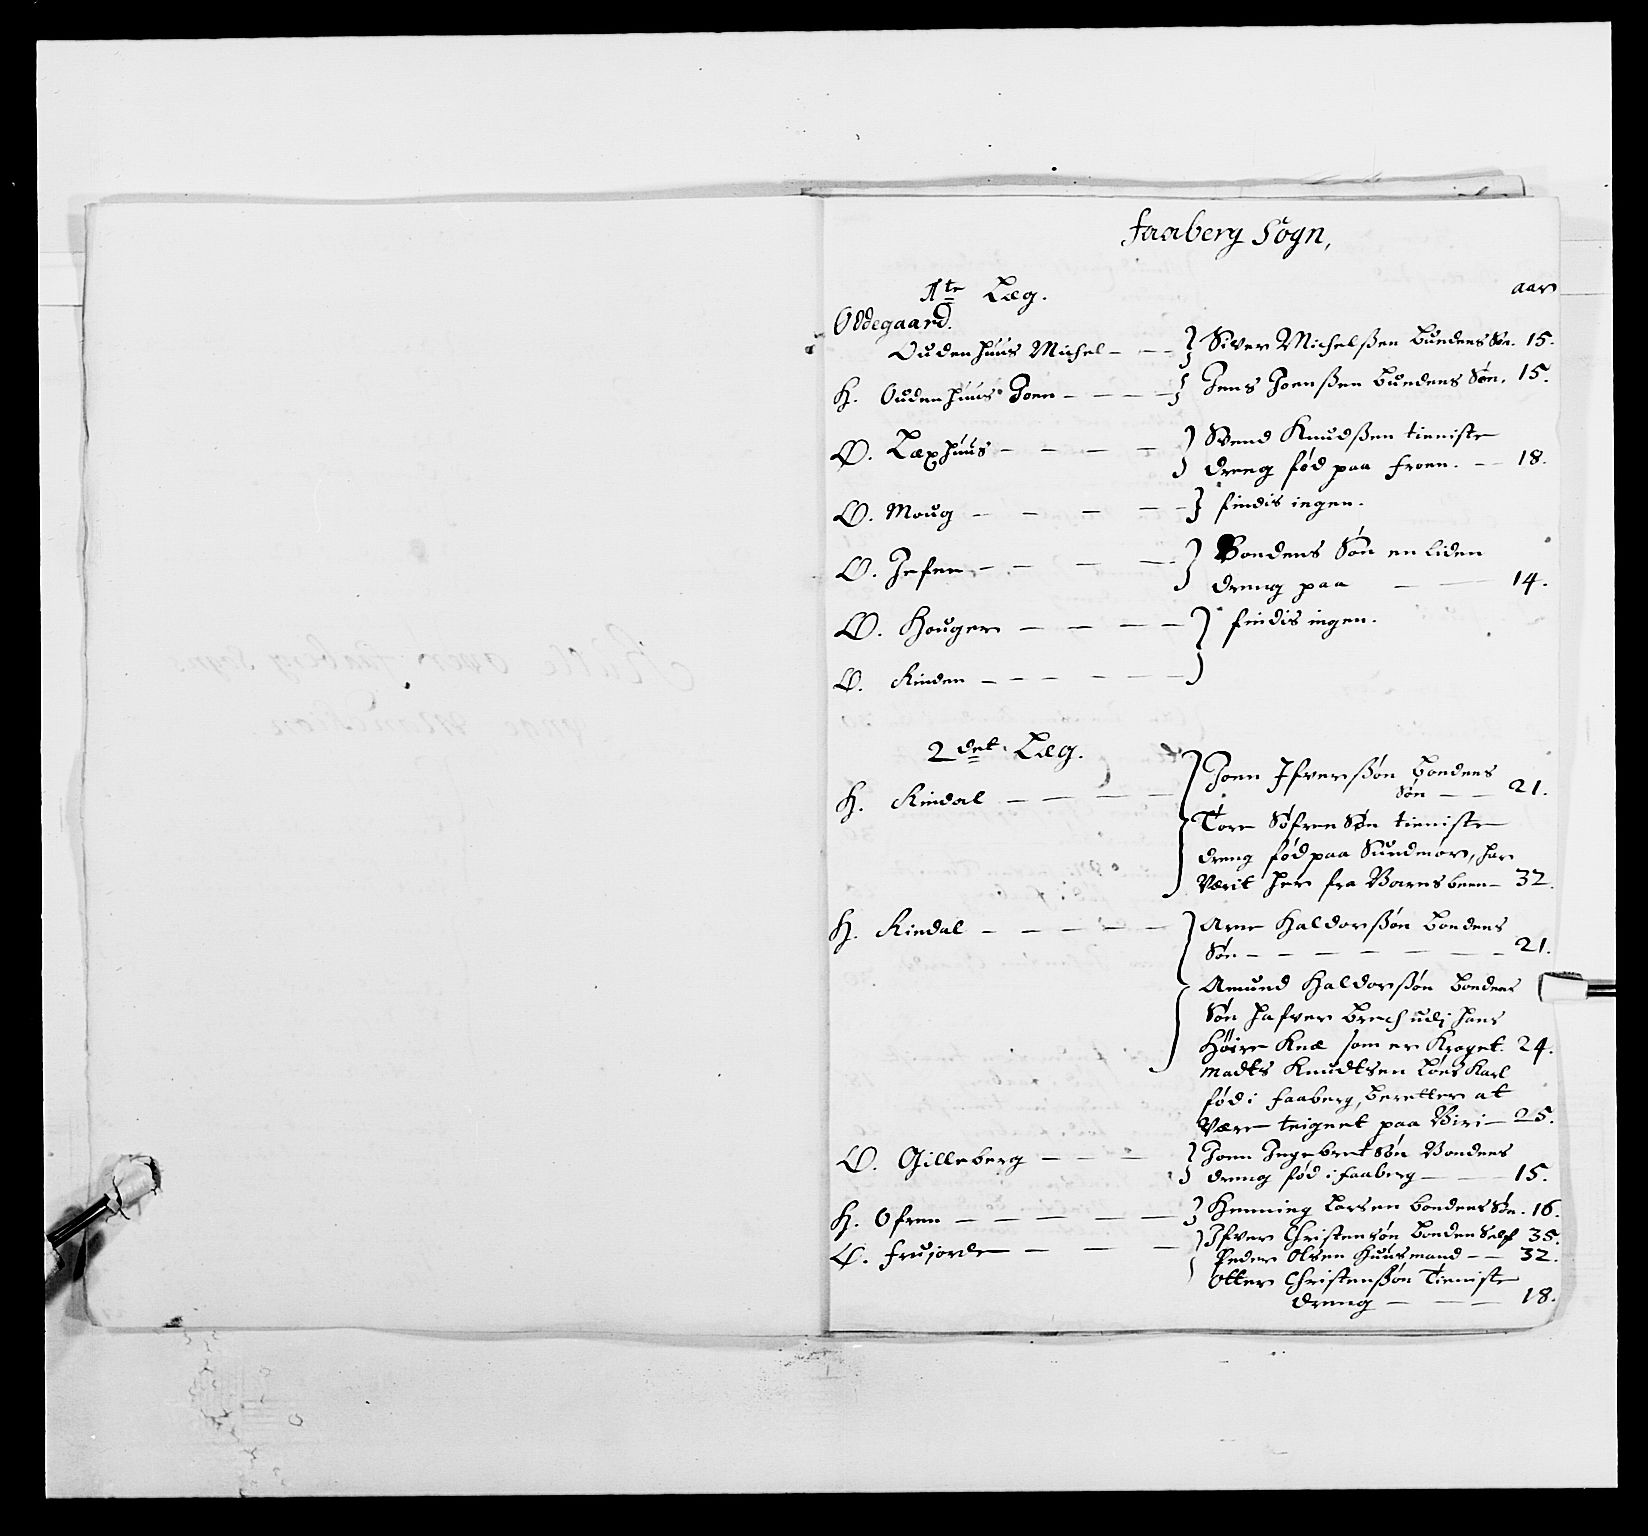 Faaberg Sogn,
1te Læg. aar
Ødegaard.
Oudenhuus Michel - - - } Siver Michelßen bundens Søn. 15.
H. Oudenhuus Joen - - - - } Jens Joenßen bundens Søn. 15.
Ø. Læxhuus - - - - } Svend Knudßen tieniste
dreng fød paa Froen. - - 18.
Ø. Moug - - - - - } findis ingen.
Ø. Jefne - - - - } Bondens Søn en liden
dreng paa - - 14.
Ø. Houger - - - - } findis ingen.
Ø. Rinden - - - - - -
2det Læg.
H. Rindal - - - - } Joen Ifverßøn bondens
Søn - - 21.
Tore Søfren Søn tieniste
dreng fød paa Sundmør, har
Værit her fra Barnsbeen - 32.
H. Rindal - - - - - } Arne Haldorßøn bondens
Søn - - - - - - - 21.
Amund Haldorßøn bondens
Søn hafver brech udj hans
Høire Knæ som er Kroget. 24.
Madts Knudtsen Løes Karl
fød i Faaberg, beretter at
Være teignet paa Biri - 25.
Ø. Gilleberg - - - } Joen Ingebret Søn Bondens
dreng fød i Faaberg - - - 15.
H. Ofren - - - - - - } Henning Larsen bondens Søn. 16.
Ø. Frujorde - - - - } Ifver Christensøn bonden Self 35.
Peder Olsen Huusmand - - 32.
Otter Christenßøn Tieniste
dreng - - - 18.